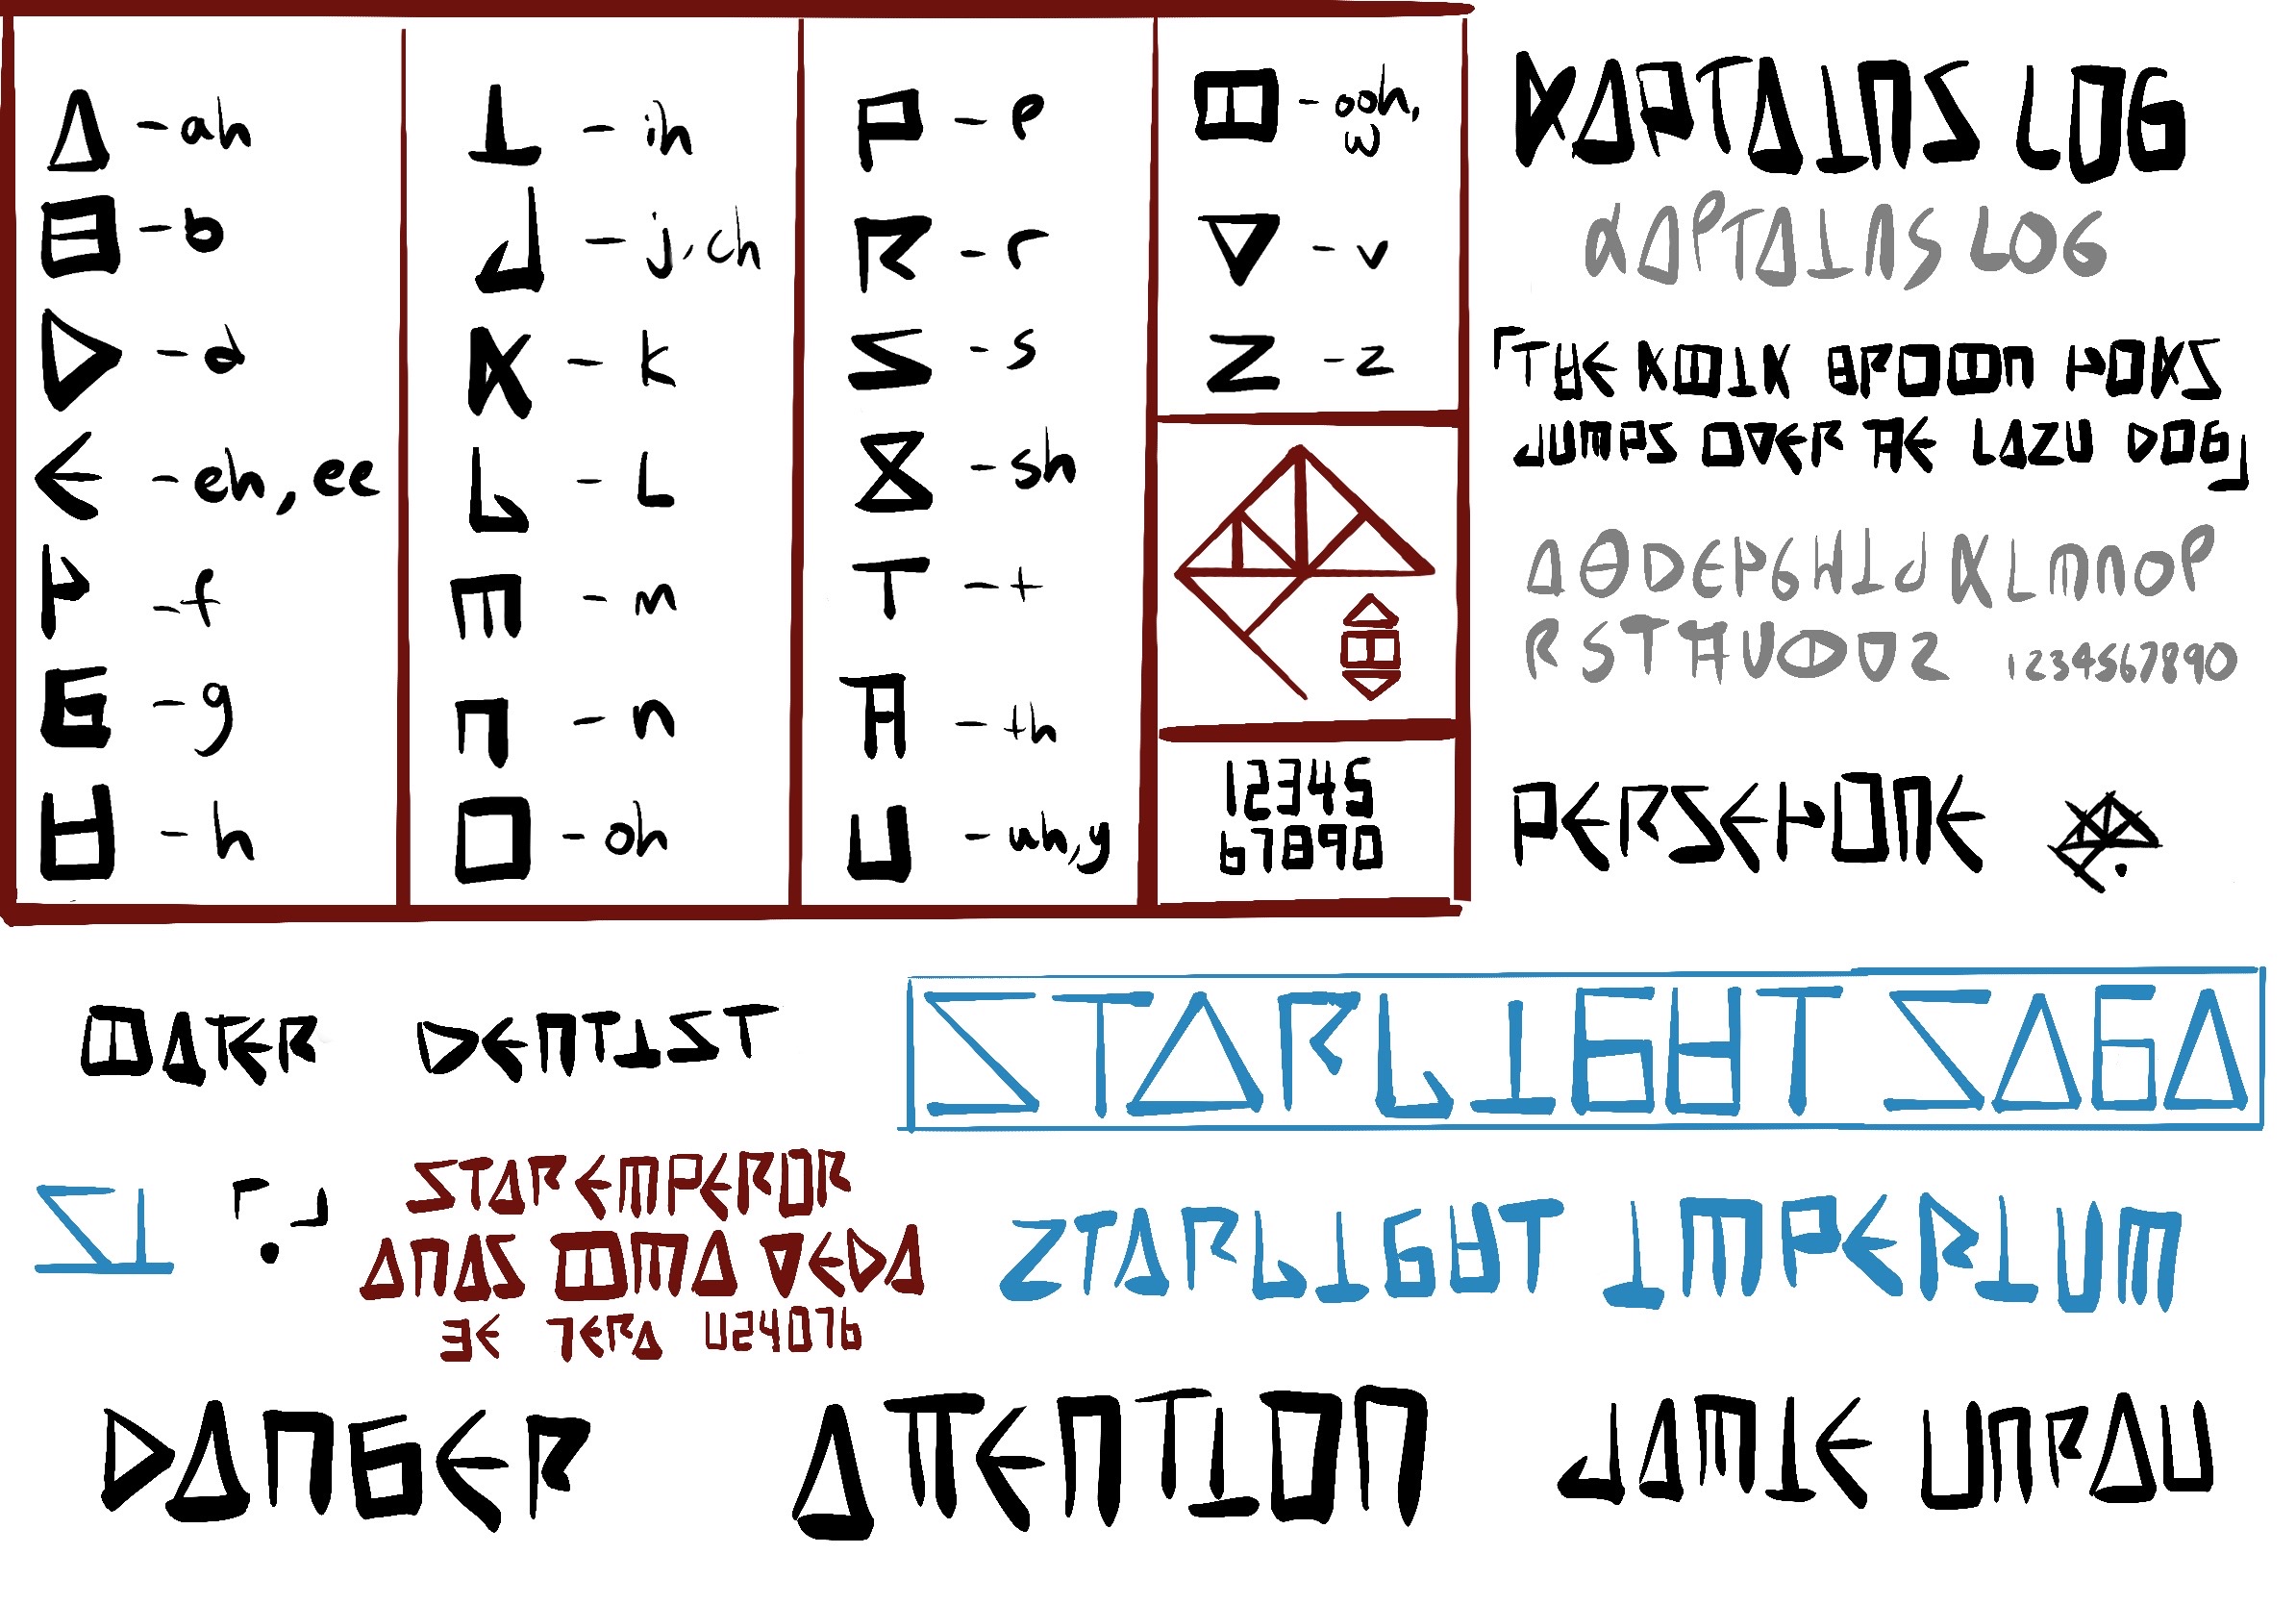 A - ah
B - b
D - d
E - eh, ee
F - f
G - g
H - h
I - ih
J - j, ch
K - k
L - L
M - m
N - n
O - oh
P - p
R - r
S - s
SH - sh
T - t
TH - th
U - uh, y
W - ooh, w
V - v
Z - z
12345
67890
KAPTAINS LOG
KAPTAINS LOG
「THE KWIK BROWN FOKS
JUMPS OVER THE LAZU DOG」
A B D E F G H I J K L M N O P
R S T TH U W V Z 1234567890
PERSEFONE
WATER DENTIST
STARLIGHT SAGA
SI
「 . 」
STAR EMPEROR
ANAS WMA VEDA
3E 7ERA U24076
ZTARLIGHT IMPERIUM
DANGER ATTENTION JAMIE UNRAU